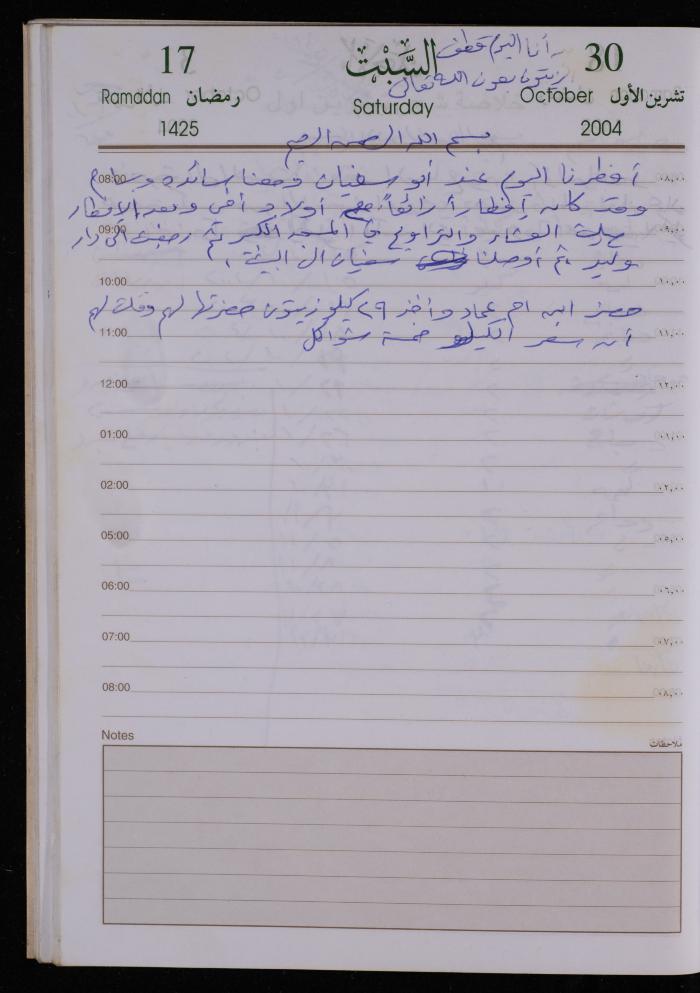 17 السَّبْت 30
بدأنا اليوم قطف
الزيتون بعون الله تعالى
Ramadan رمضان Saturday October تشرين الأول
1425 2004
بسم الله الرحمن الرحيم
08:00 ٠٨,٠٠
أفطرنا اليوم عند أبو سفيان ومعنا سائده وسام
وقد كان إفطاراً رائعاً أولاد و بعد الإفطار
09:00 ٠٩,٠٠
صلاة العشاء والتراويح في المسجد الكبير ثم رجعت الى دار
وليد ثم أوصلنا سفيان الى البيت .
10:00 ١٠,٠٠
حضر ابن ام عماد وأخذ ٢٩ كيلو زيتون حضرتها لهم وقلت لهم
11:00 ١١,٠٠
أن سعر الكيلو خمسة شواكل
12:00 ١٢,٠٠
01:00 ٠١,٠٠
02:00 ٠٢,٠٠
05:00 ٠٥,٠٠
06:00 ٠٦,٠٠
07:00 ٠٧,٠٠
08:00 ٠٨,٠٠
Notes ملاحظات